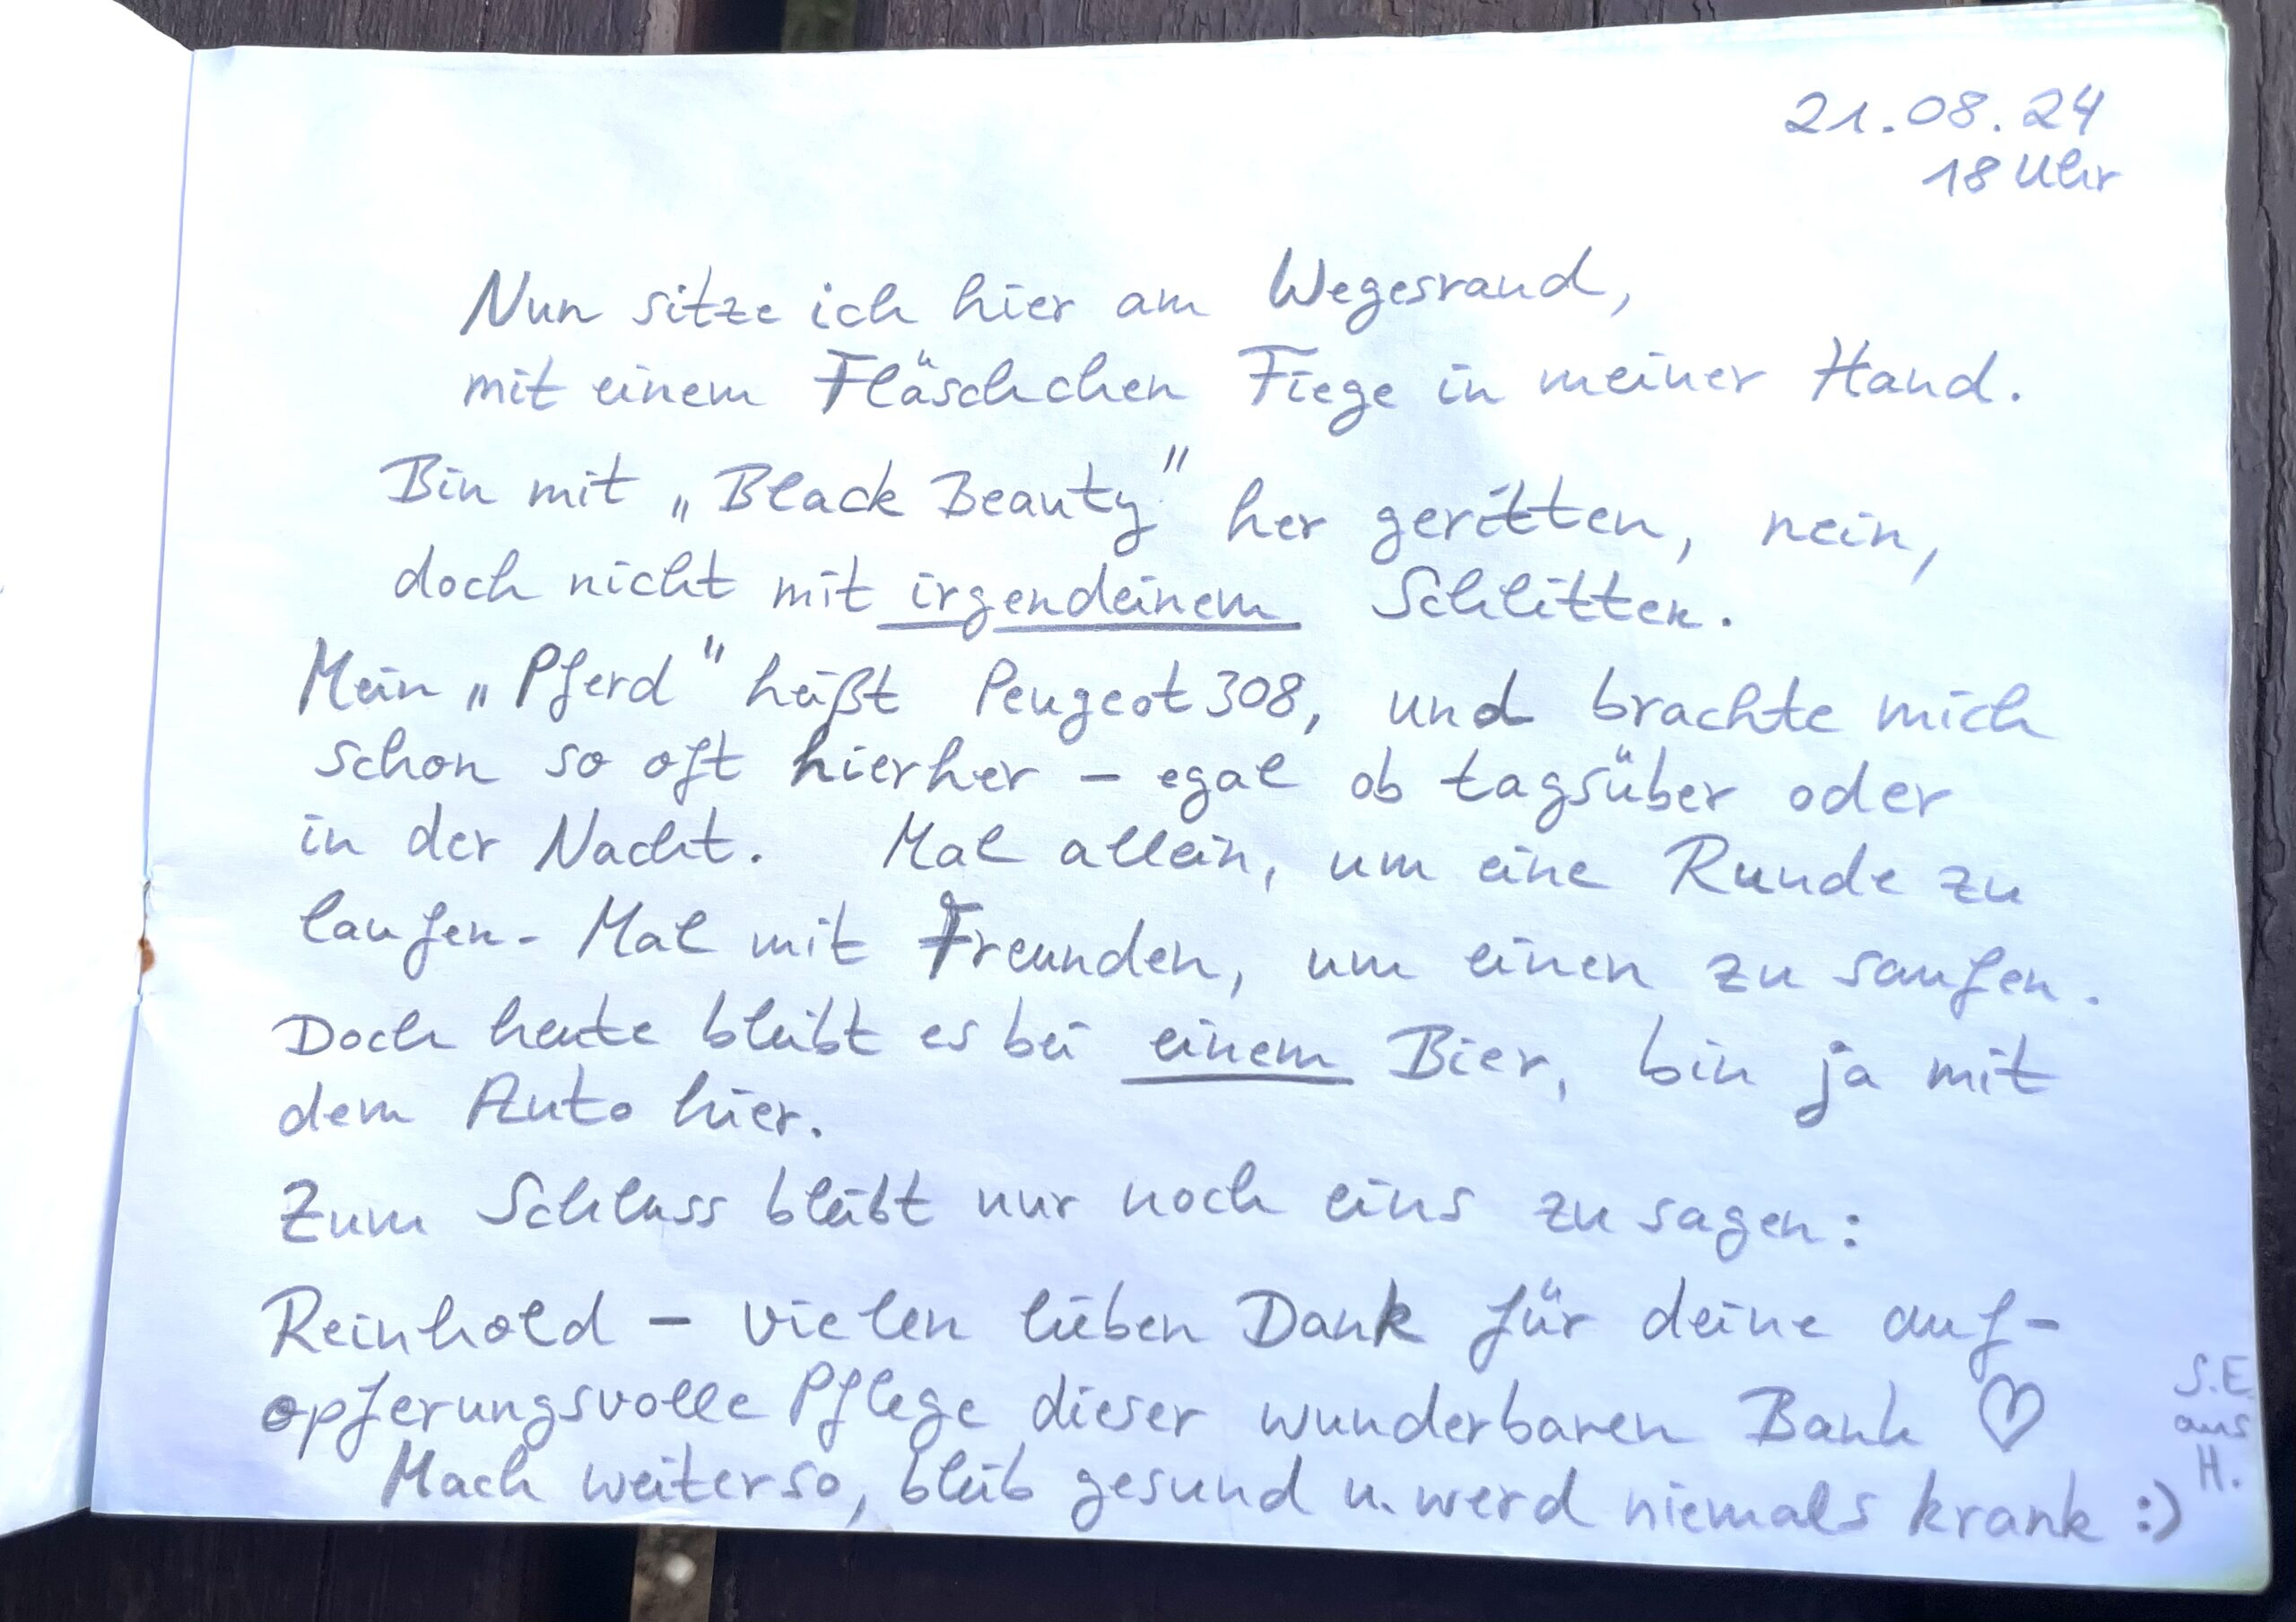 21.08.24
18 Uhr
Nun sitze ich hier am Wegesrand,
mit einem Fläschchen Fiege in meiner Hand.
Bin mit „Black Beauty" her geritten, nein,
doch nicht mit irgendeinem Schlitten.
Mein „Pferd" heißt Peugeot 308, und brachte mich
schon so oft hierher – egal ob tagsüber oder
in der Nacht. Mal allein, um eine Runde zu
laufen. Mal mit Freunden, um einen zu saufen.
Doch heute bleibt es bei einem Bier, bin ja mit
dem Auto hier.
Zum Schluss bleibt nur noch eins zu sagen:
Reinhold – vielen lieben Dank für deine auf-
opferungsvolle Pflege dieser wunderbaren Bank ♡
Mach weiter so, bleib gesund u. werd niemals krank :)
S.E.
aus
H.